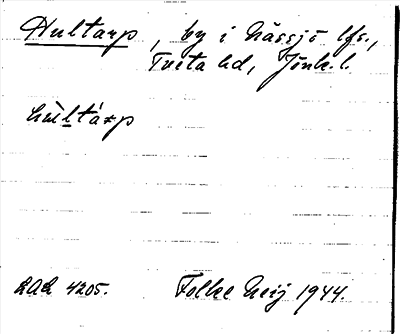 Hultarp, by i Nässjö lfs.,
Tveta hd, Jönk. l.
hùltárp
4205. Folke Heij 1944.